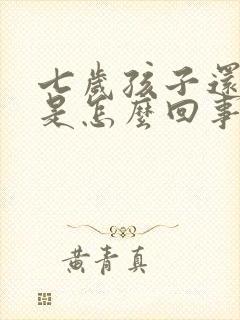 七歲孩子還
是怎麼回事
黃青真